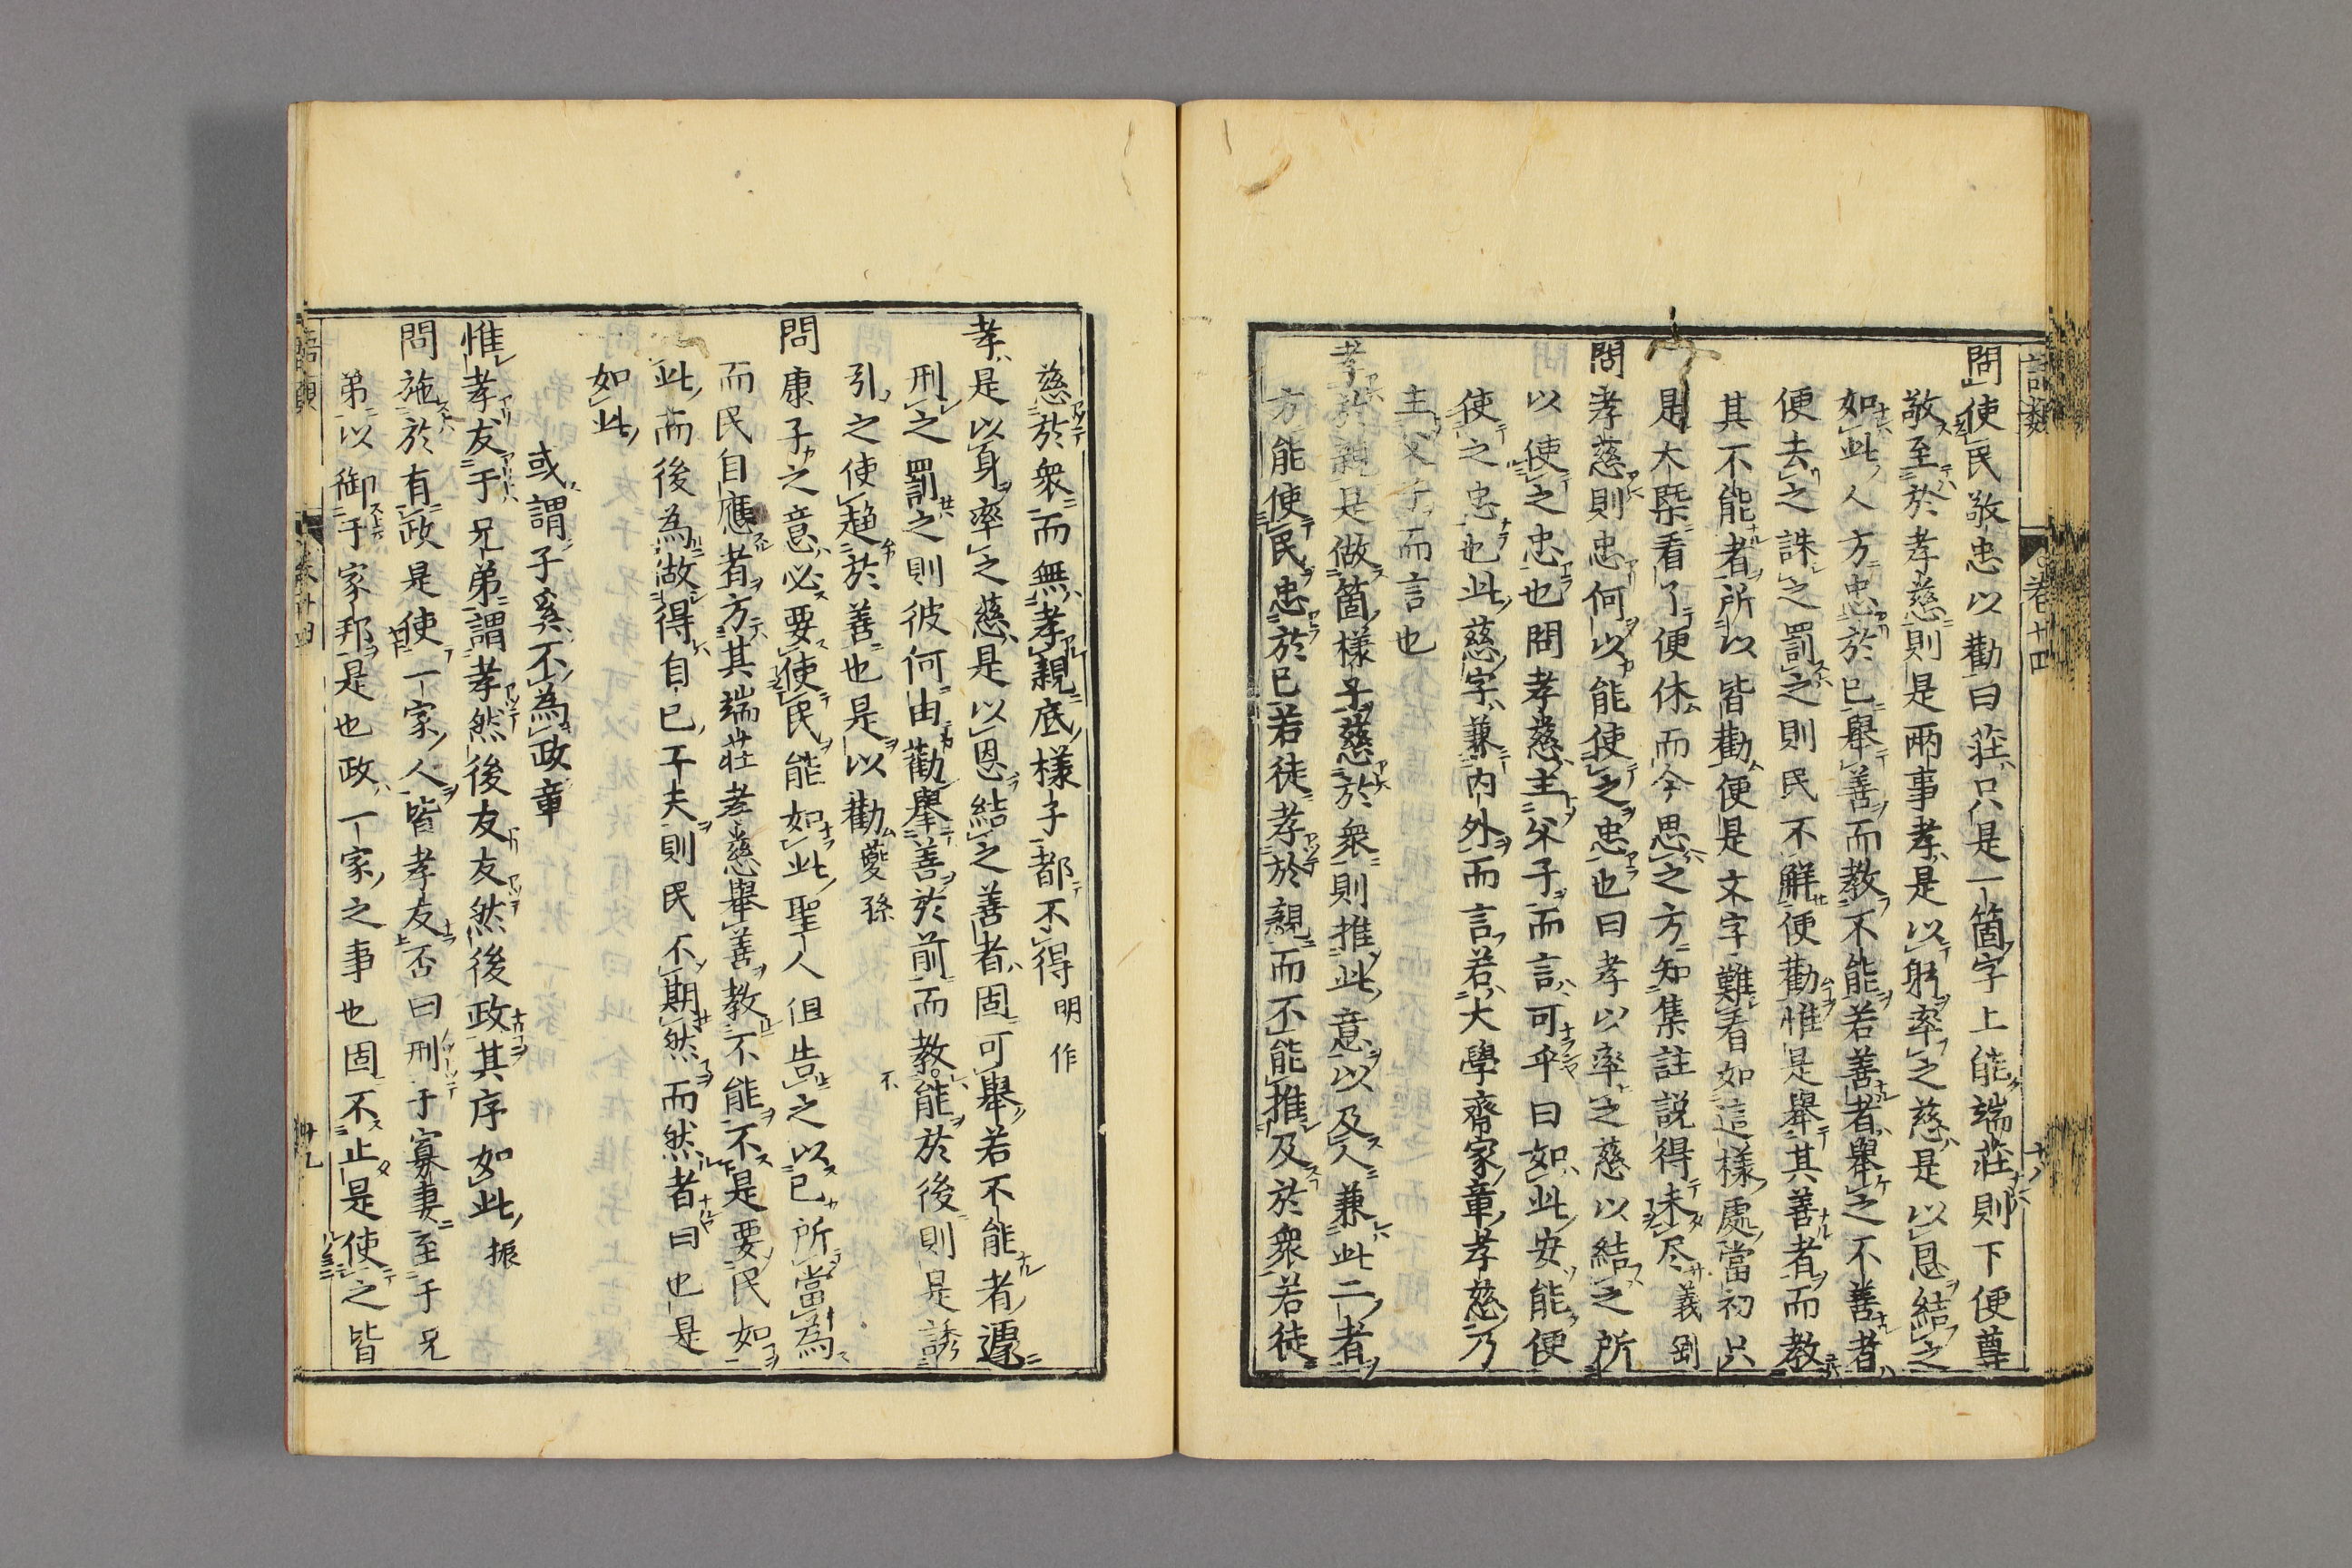 問使民敬忠以勸曰莊只是一箇字上能端莊則下便尊
敬至於孝慈則是兩事孝是以躬率之慈是以恩結之
如此人方忠於已舉善而教不能若善者舉之不善者
便去之誅之罰之則民不解便勸惟是舉其善者而教
其不能者所以皆勸便是文字難看如這樣處當初只
是大槩看了便休而今思之方知集註說得未尽義剛
問孝慈則忠何以能使之忠也曰孝以率之慈以結之所
以使之忠也問孝慈主父子而言可乎曰如此安能便
使之忠也此慈字兼內外而言若大學齊家章孝慈乃
主父子而言也
孝於親是做箇樣子慈於衆則推此意以及人兼此二者
方能使民忠於已若徒孝於親而不能推及於衆若徒
慈於衆而無孝親底樣子都不得明作
孝是以身率之慈是以恩結之善者固可舉若不能者遽
刑之罰之則彼何由勸舉善於前而教不能於後則是誘
引之使趨於善也是以勸夔孫
問康子之意必要使民能如此聖人但告之以已所當為
而民自應者方其端莊孝慈舉善教不能不是要民如
此而後為做得自已工夫則民不期然而然者曰也是
如此
或謂子奚不為政章
惟孝友于兄弟謂孝然後友友然後政其序如此振
問施於有政是使一家人皆孝友否曰刑于寡妻至于兄
弟以御于家邦是也政一家之事也固不止是使之皆
語類
卷十四